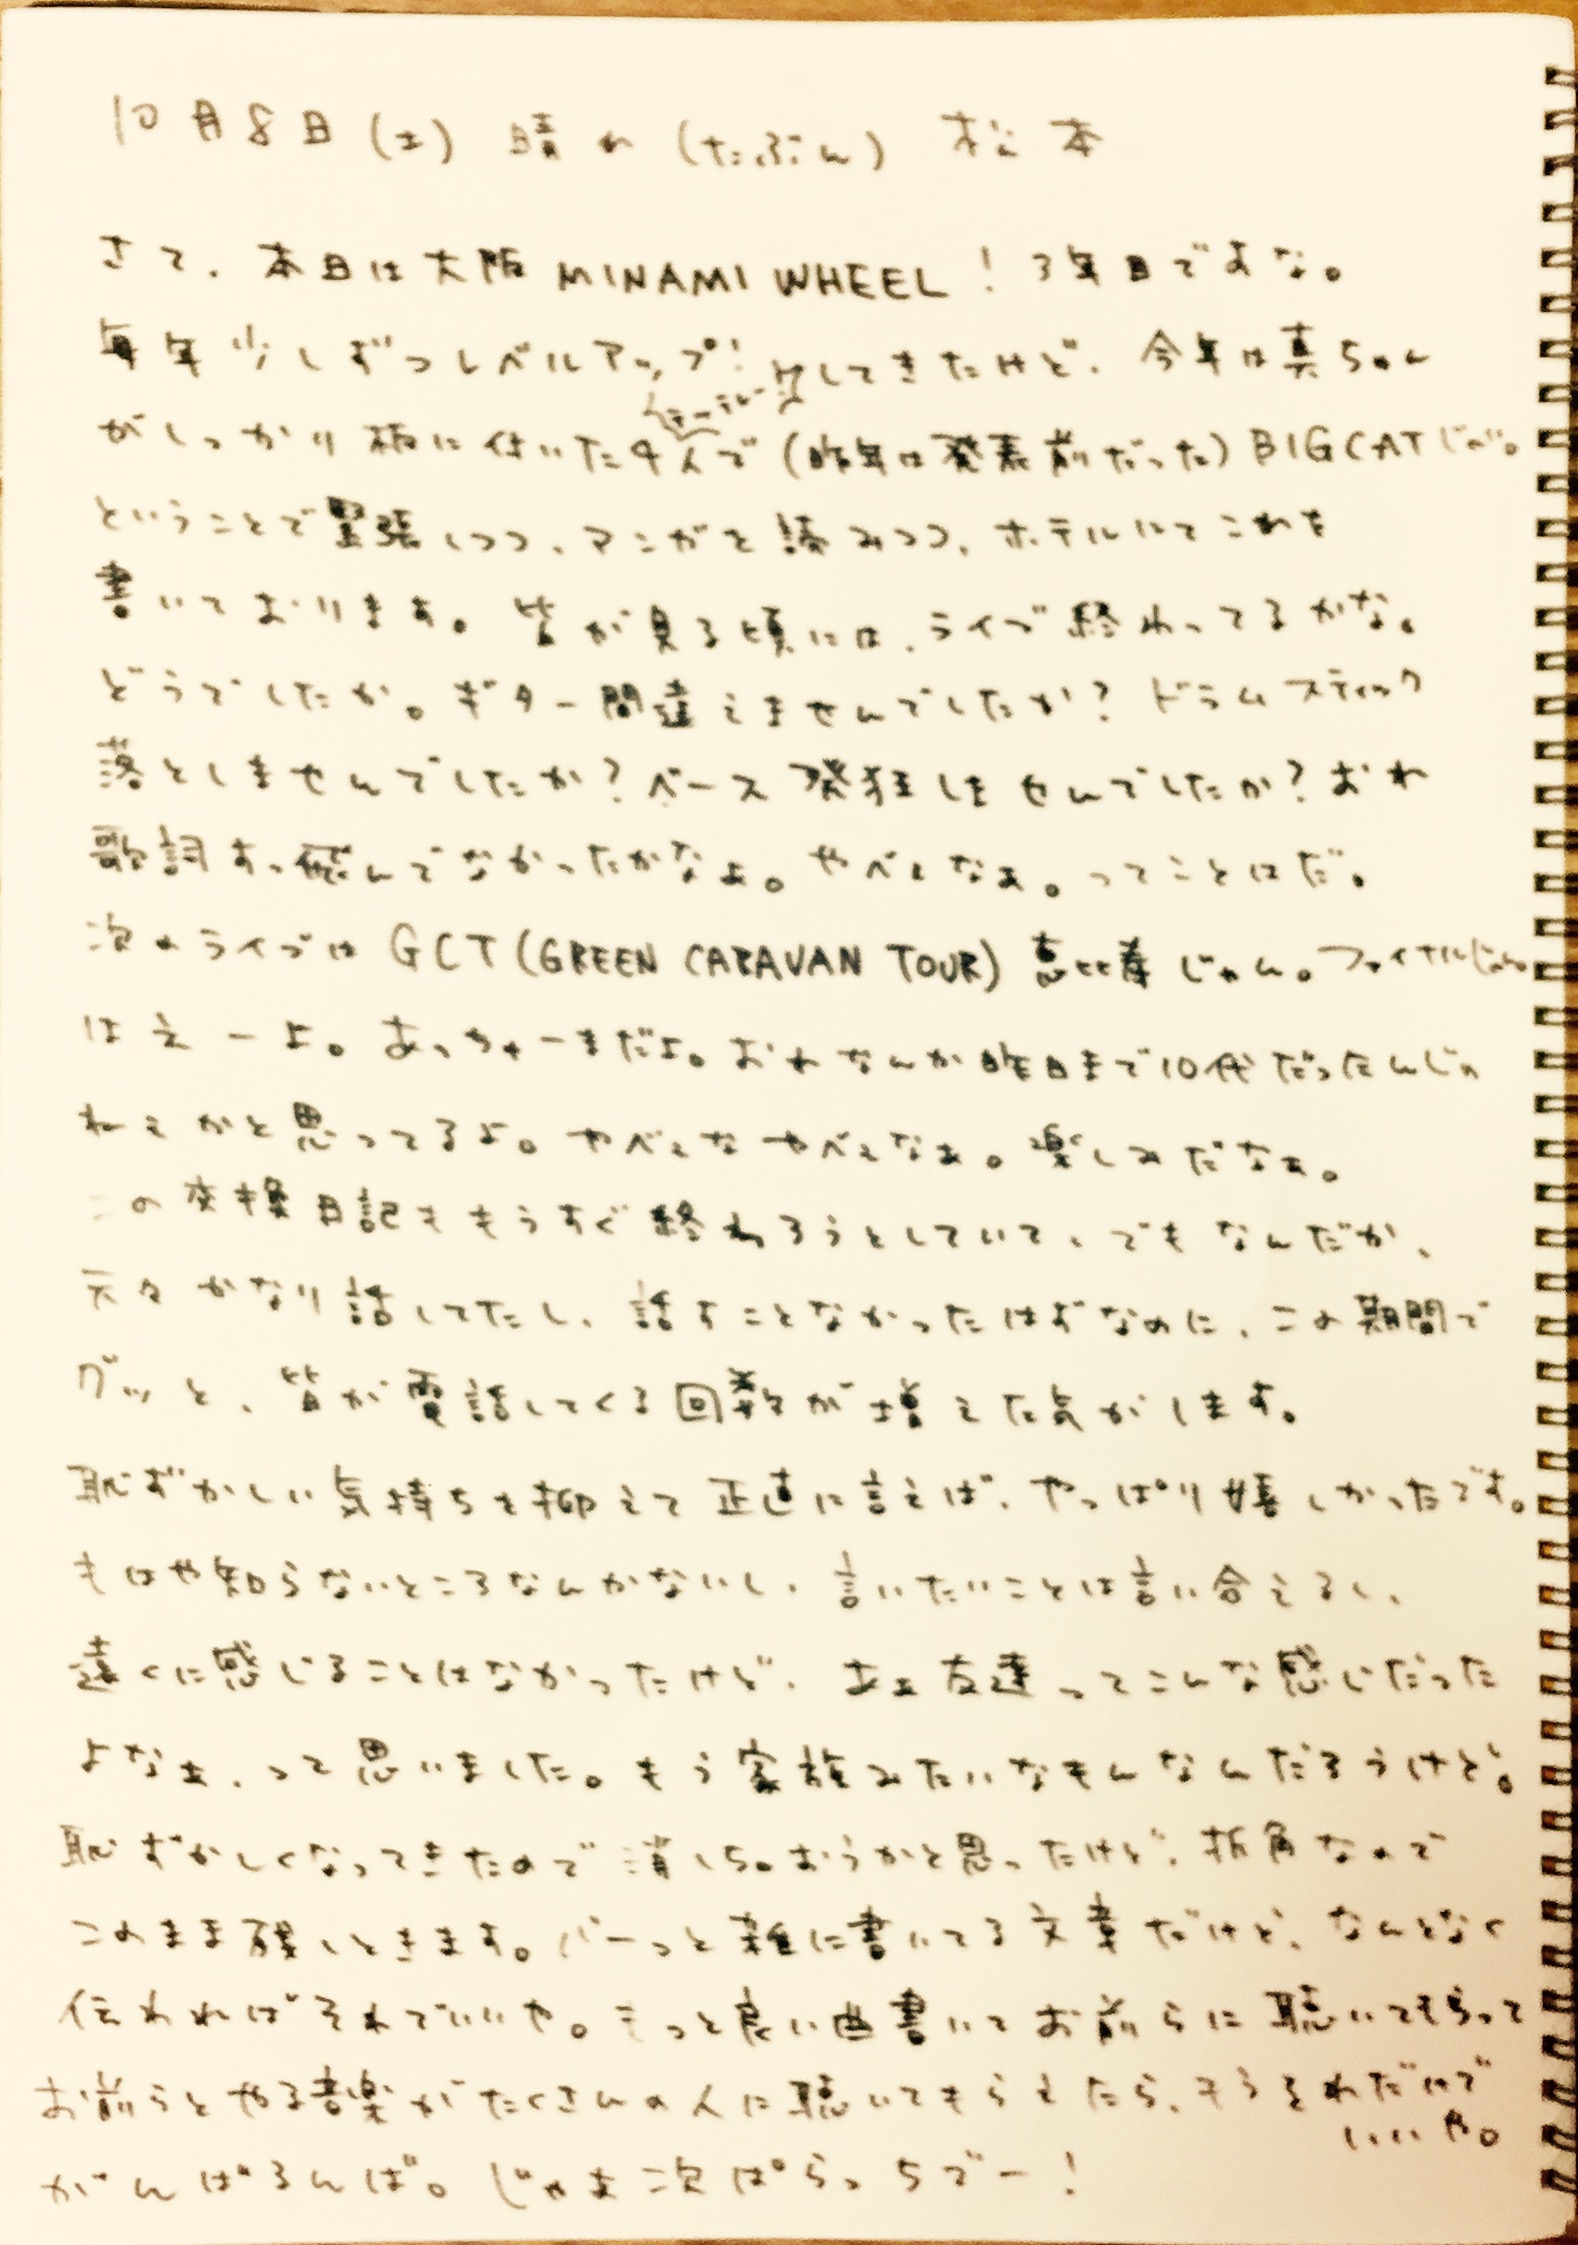 10月8日(土) 晴れ (たぶん) 松本
さて、本日は大阪 MINAMI WHEEL! 3年目ですよな。
毎年少しずつレベルアップ!してきたけど、今年は真ちゃん
がしっかり板に付いた4人で (昨年は発表前だった) BIGCATじゃ。
ということで緊張しつつ、マンガを読みつつ、ホテルにてこれを
書いております。皆が見る頃には、ライブ終わってるかな。
どうでしたか。ギター間違えませんでしたか? ドラムスティック
落としませんでしたか? ベース発狂しませんでしたか? おれ
歌詞すっ飛んでなかったかなぁ。やべえなぁ。ってことはだ。
次のライブは GCT (GREEN CARAVAN TOUR) 恵比寿じゃん。ファイナルじゃん。
はえーよ。あっちゅーまだよ。おれなんか昨日まで10代だったんじゃ
ねえかと思ってるよ。やべえなやべえなぁ。楽しみだなぁ。
この交換日記ももうすぐ終わろうとしていて、でもなんだか、
元々かなり話してたし、話すことなかったはずなのに、この期間で
グッと、皆が電話してくる回数が増えた気がします。
恥ずかしい気持ちを抑えて正直に言えば、やっぱり嬉しかったです。
もはや知らないところなんかないし、言いたいことは言い合えるし、
遠くに感じることはなかったけど、あぁ友達ってこんな感じだった
よなぁ、って思いました。もう家族みたいなもんなんだろうけど。
恥ずかしくなってきたので消しちゃおうかと思ったけど、折角なので
このまま残しときます。バーっと雑に書いてる文章だけど、なんとなく
伝わればそれでいいや。もっと良い曲書いてお前らに聴いてもらって
お前らとやる音楽がたくさんの人に聴いてもらえたら、もうそれだけで
いいや。
がんばるんば。じゃあ次ぱらっちでー!